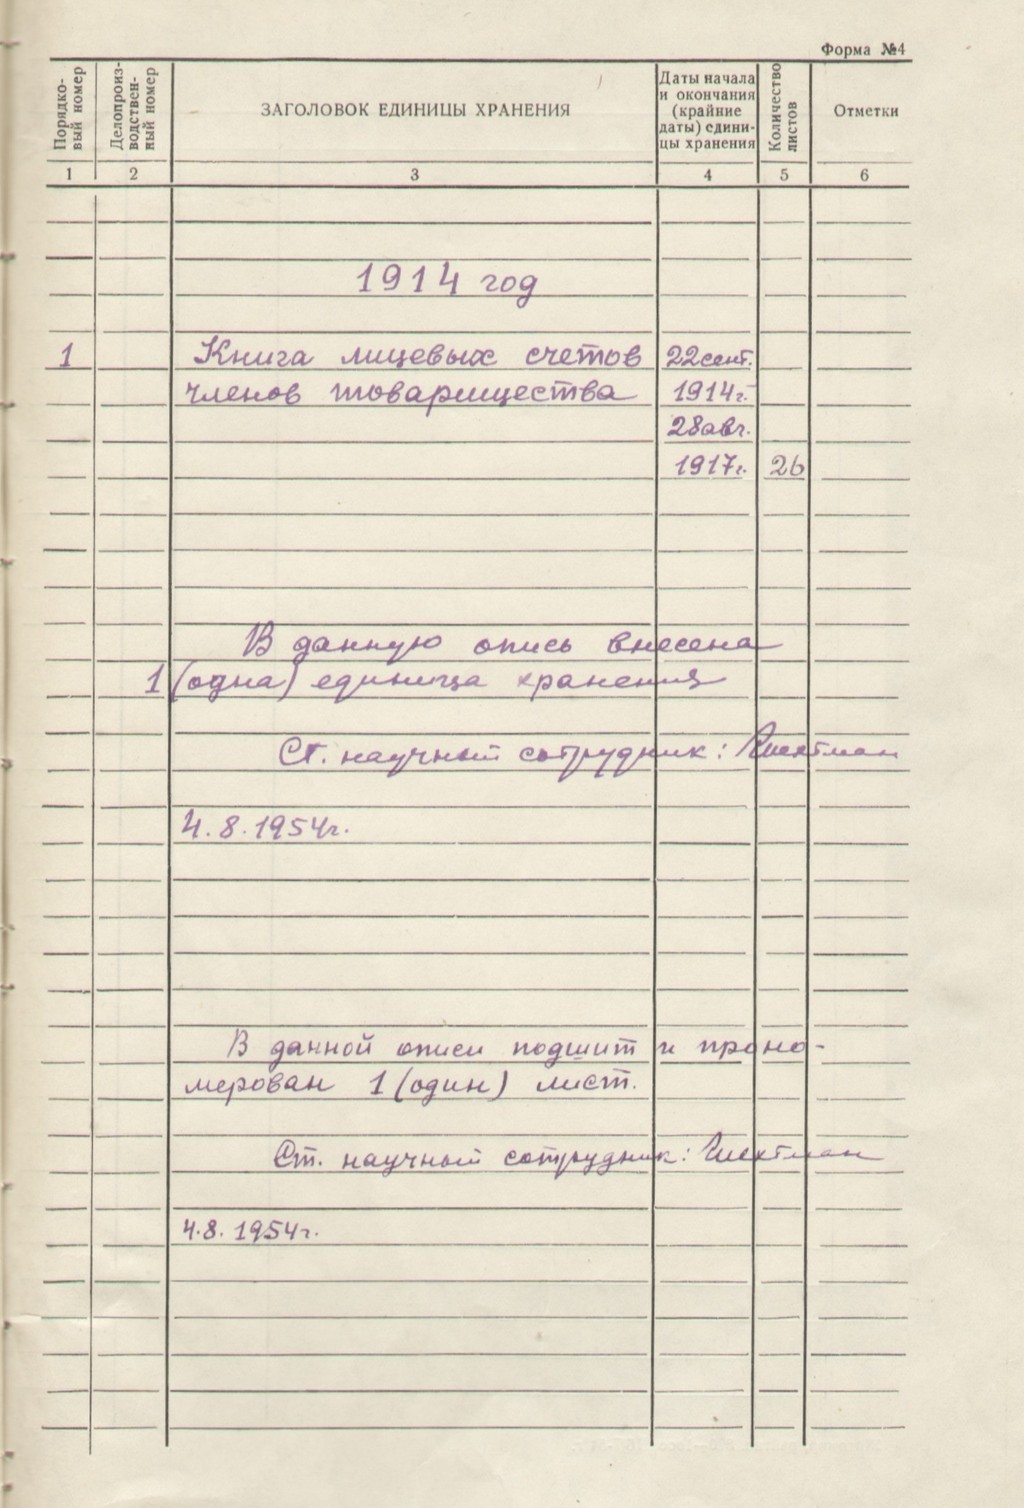 Форма №4
Порядко-
вый номер
Делопроиз-
водствен-
ный номер
ЗАГОЛОВОК ЕДИНИЦЫ ХРАНЕНИЯ
Даты начала
и окончания
(крайние
даты) едини-
цы хранения
Количество
листов
Отметки
1 2 3 4 5 6
1914 год
1 Книга лицевых счетов 22 сент.
членов товарищества 1914 г.
28 авг.
1917 г. 26
В данную опись внесена
1 (одна) единица хранения
Ст. научный сотрудник:
4.8.1954 г.
В данной описи подшит и проно-
мерован 1 (один) лист.
Ст. научный сотрудник:
4.8.1954 г.